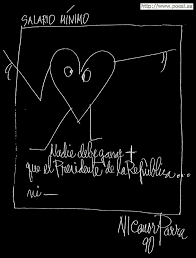 http://www.pocal.es
SALARIO MÍNIMO
Nadie debe ganar +
que el Presidente de la República...
ni —
Nicanor Parra
90